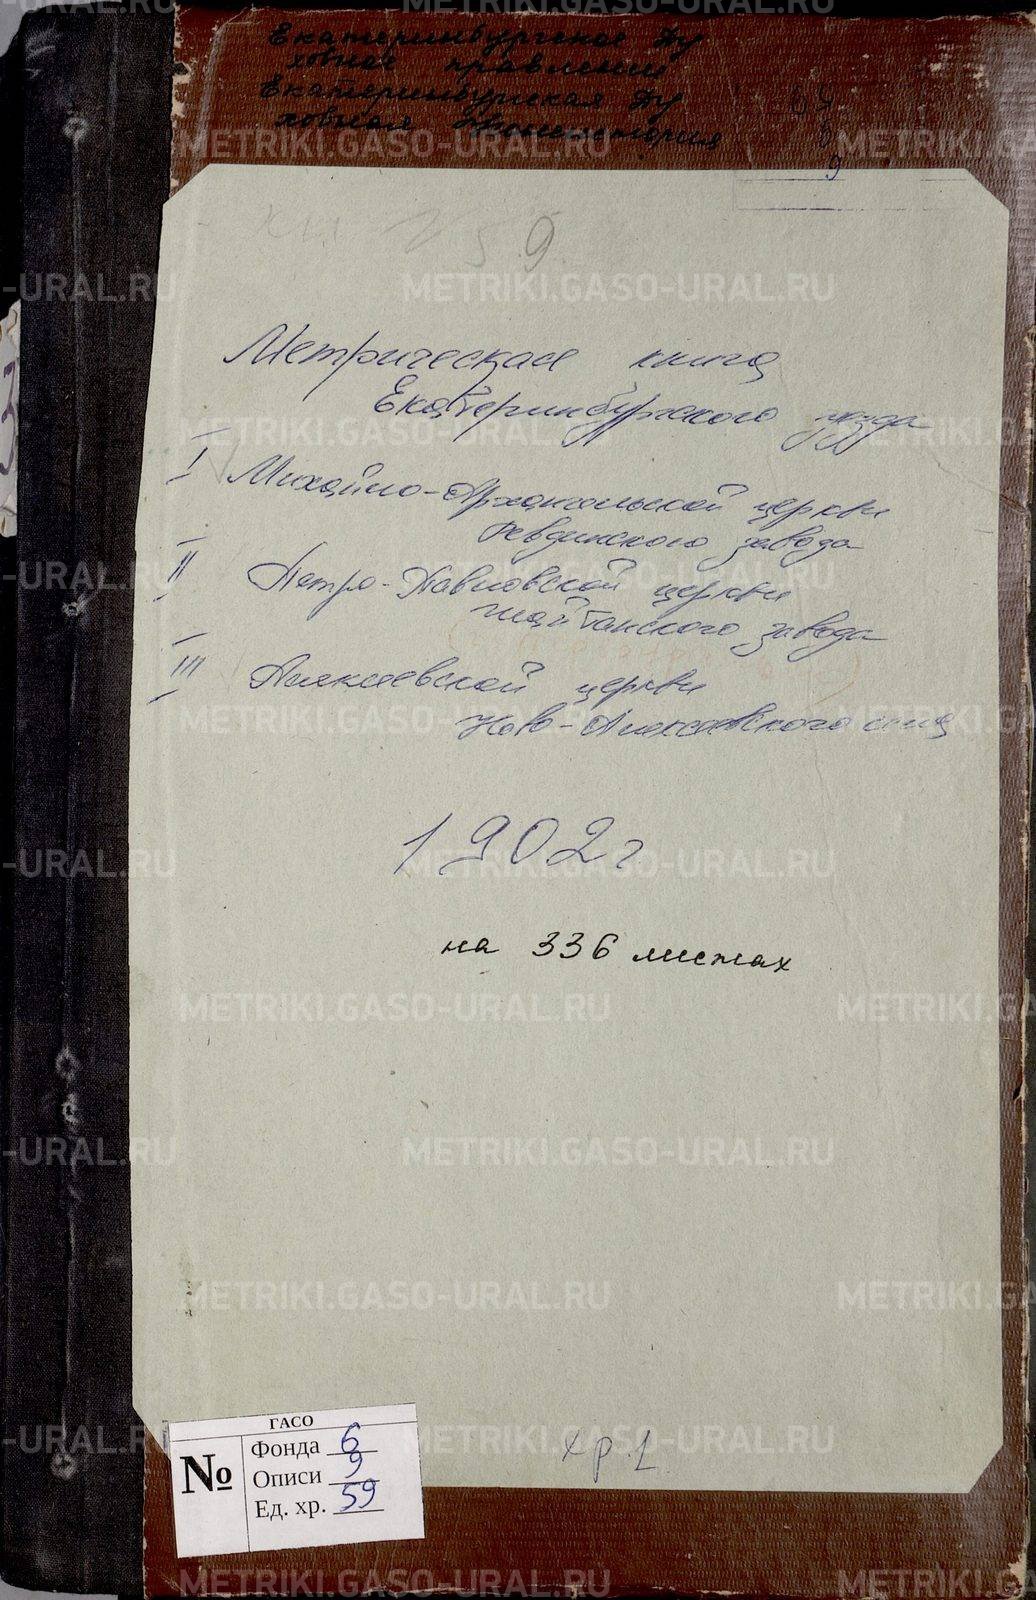 Екатеринбургское Ду
ховное правление
Екатеринбургская Ду
ховная Консистория
59
9
6
9
Метрическая книга
Екатеринбургского уезда
I Михайло-Архангельской церкви
Ревдинского завода
II Петро-Павловской церкви
Шайтанского завода
III Алексеевской церкви
Ново-Алексеевского села
1902 г
на 336 листах
хр. 1
ГАСО
№
Фонда 6
Описи 9
Ед. хр. 59
METRIKI.GASO-URAL.RU